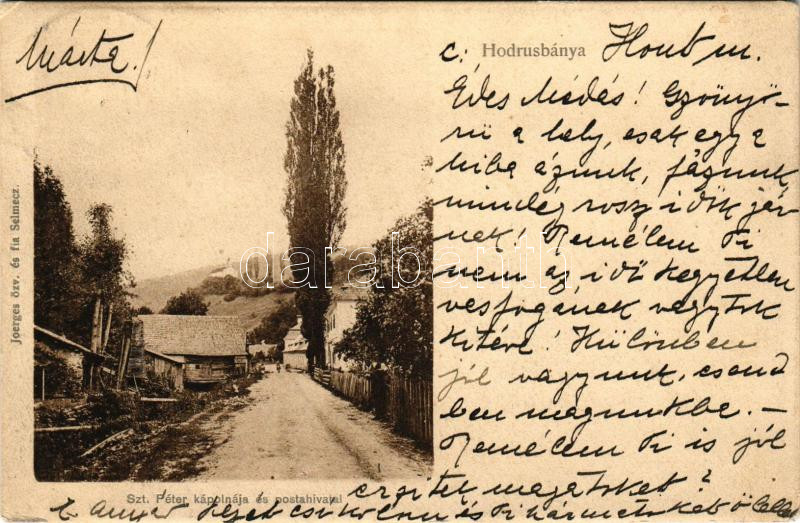 Márta!
c: Hodrusbánya Hont m.
Édes Médás! Gyönyö-
rü a hely, csak egy a
hiba ázunk, fázunk,
mindég rossz idők jár
nak! Remélem Ti
nem az idő kegyetlen
vasfogának vagytok
kitéve! Különben
jól vagyunk, csend
ben magunkba. —
Remélem Ti is jól
érzitek magatokat?
Szt. Péter kápolnája és postahivatal
Joerges özv. és fia Selmecz.
darabanth
és Ti hármatokat ölel